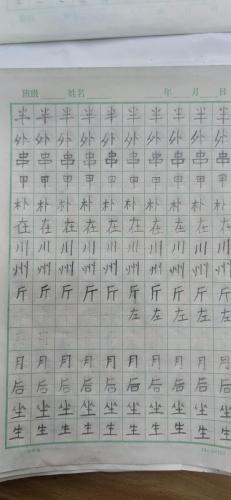 班级 姓名 年 月 日
半 半 半 半 半 半 半 半 半 半
外 外 外 外 外 外 外 外 外 外
串 串 串 串 串 串 串 串 串 串
甲 甲 甲 甲 甲 甲 甲 甲 甲 甲
朴 朴 朴 朴 朴 朴 朴 朴 朴 朴
在 在 在 在 在 在 在 在 在 在
川 川 川 川 川 川 川 川 川 川
州 州 州 州 州 州 州 州 州 州
斤 斤 斤 斤 斤 斤 斤 斤 斤 斤
左 左 左 左 左
月 月 月 月 月 月 月 月 月 月
后 后 后 后 后 后 后 后 后 后
坐 坐 坐 坐 坐 坐 坐 坐 坐 坐
生 生 生 生 生 生 生 生 生 生